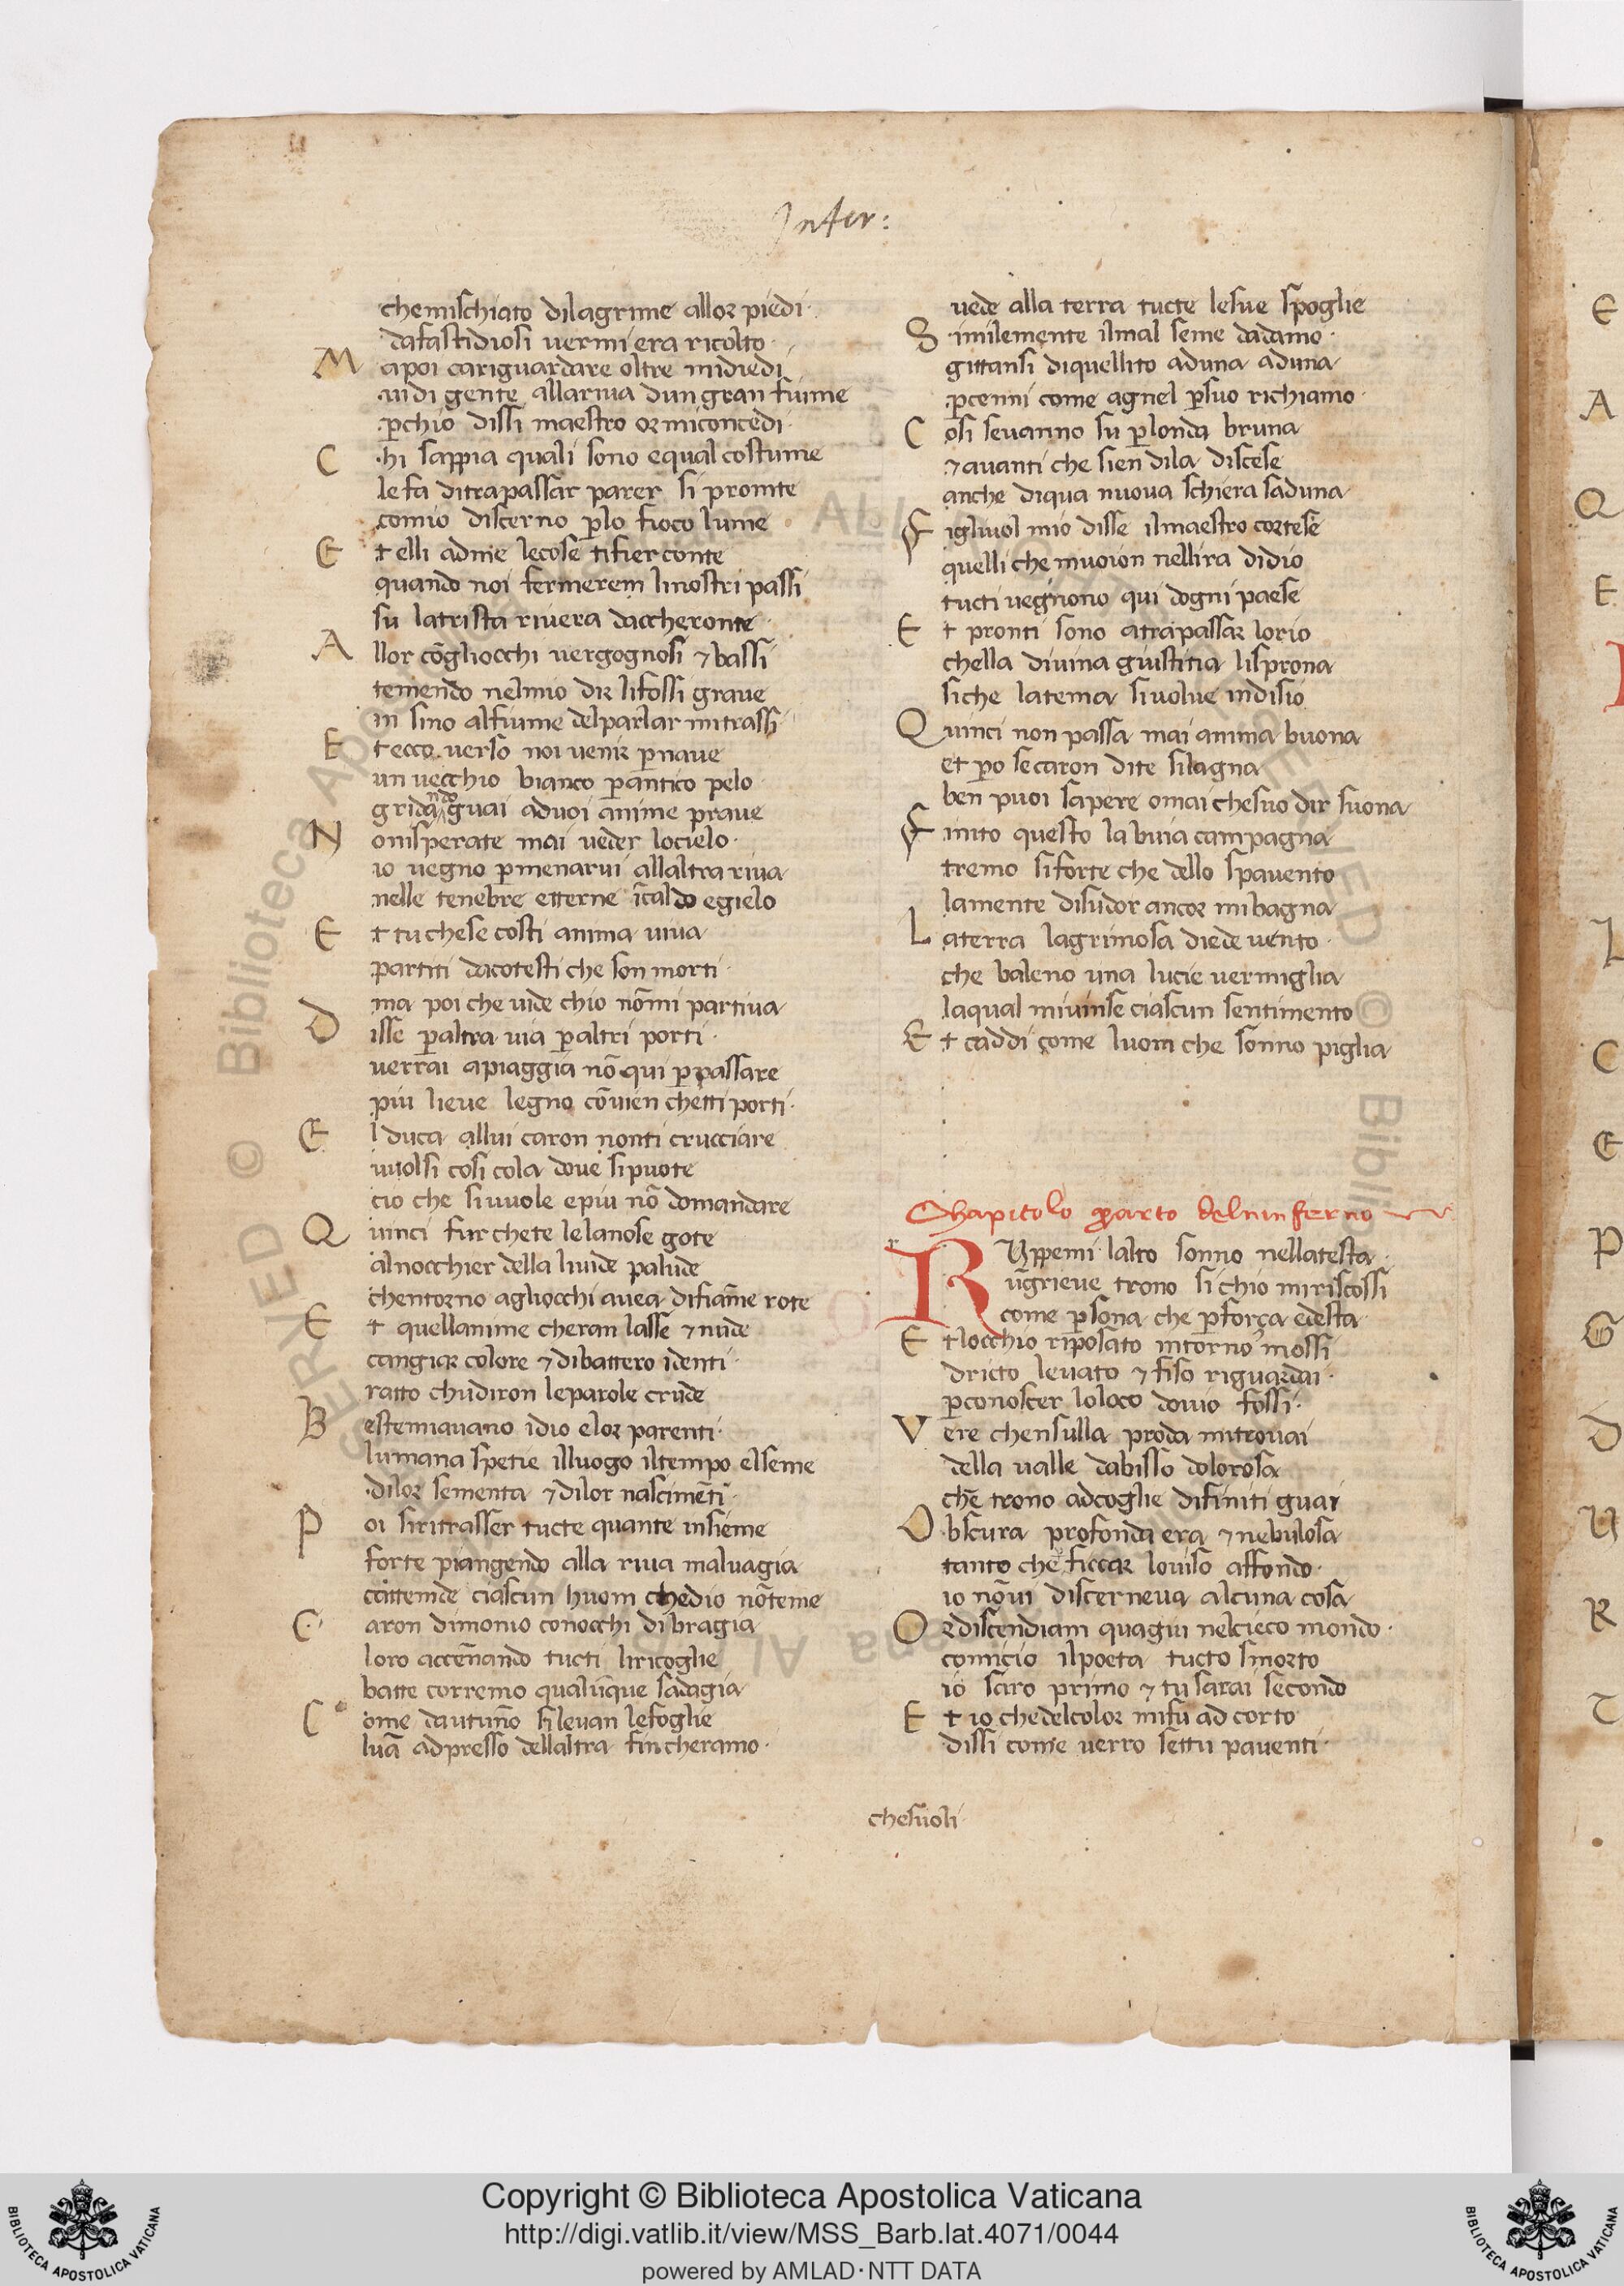 Infer:
chemischiato dilagrime allor piedi·
dafastidiosi uermi era ricolto·
Mapoi cariguardare oltre midiedi
uidi gente allariua dungran fiume
ꝑchio dissi maestro or miconcedi·
Chi sappia quali sono equal costume
le fa ditrapassar parer si promte
comio discerno ꝑlo fioco lume
Et elli adme lecose tifier conte
quando noi fermerem linostri passi
su latrista riuera daccheronte·
Allor cōgliocchi uergognosi ⁊ bassi
temendo nelmio dir lifossi graue
in sino alfiume delparlar mitrassi
Et ecco uerso noi uenir ꝑnaue
un uecchio bianco ꝑantico pelo
gridando guai aduoi anime praue
Nonisperate mai ueder locielo·
io uegno ꝑmenarui allaltra riua
nelle tenebre etterne ĩcaldo egielo
Et tu chese costi anima uiua
partiti dacotesti che son morti·
ma poi che uide chio nōmi partiua
Disse ꝑaltra uia ꝑaltri porti·
uerrai apiaggia nō qui ꝑpassare
piu lieue legno cōuien chetti porti·
El duca allui caron nonti crucciare
uuolsi cosi cola doue sipuote
cio che siuuole epiu nō domandare
Quinci fur chete lelanose gote
alnocchier della liuide palude
chentorno agliocchi auea difiam̄e rote
Et quellanime cheran lasse ⁊ nude
cangiar colore ⁊ dibattero identi·
ratto chudiron leparole crude
Bestemiauano idio elor parenti·
lumana spetie illuogo iltempo elseme
dilor sementa ⁊ dilor nascimēti·
Poi siritrasser tucte quante insieme
forte piangendo alla riua maluagia
cattende ciascun huom chedio nōteme
Caron dimonio conocchi di bragia
loro accēnando tucti liricoglie
batte corremo qualūque sadagia
Come dautun̄o sileuan lefoglie
luā adpresso dellaltra fincheramo·
uede alla terra tucte lesue spoglie
Similemente ilmal seme dadamo·
gittansi diquellito aduna aduna
ꝑcenni come agnel ꝑsuo richiamo·
Cosi seuanno su ꝑlonda bruna
⁊ auanti che sien dila discese
anche diqua nuoua schiera saduna
Figliuol mio disse ilmaestro cortese
quelli che muoion nellira didio
tucti uegnono qui dogni paese
Et pronti sono atrapassar lorio
chella diuina giustitia lisprona
siche latema siuolue indisio
Quinci non passa mai anima buona
et ꝑo secaron dite silagna
ben puoi sapere omai chesuo dir suona
Finito questo la buia campagna
tremo siforte che dello spauento
lamente disudor ancor mibagna
Laterra lagrimosa diede uento·
che baleno una lucie uermiglia
laqual miuinse ciascun sentimento
Et caddi come luom che sonno piglia
Chapitolo quarto delninferno
RUppemi lalto sonno nellatesta·
ūgrieue trono si chio miriscossi
come ꝑsona che ꝑforça edesta·
Et locchio riposato intorno mossi
dricto leuato ⁊ fiso riguardai·
ꝑconoscer loloco douio fossi·
Vere chensulla proda mitrouai
della ualle dabisso dolorosa
che trono adcoglie difiniti guai
Obscura profonda era ⁊ nebulosa
tanto che ficcar louiso affondo·
io nōui discerneua alcuna cosa
Ordiscendiam quagiu nelcieco mondo·
comĩcio ilpoeta tucto smorto
io saro primo ⁊ tu sarai secondo
Et io chedelcolor mifu ad corto
dissi come uerro settu pauenti·
chesuoli
Copyright © Biblioteca Apostolica Vaticana
http://digi.vatlib.it/view/MSS_Barb.lat.4071/0044
powered by AMLAD·NTT DATA
BIBLIOTECA APOSTOLICA VATICANA
BIBLIOTECA APOSTOLICA VATICANA